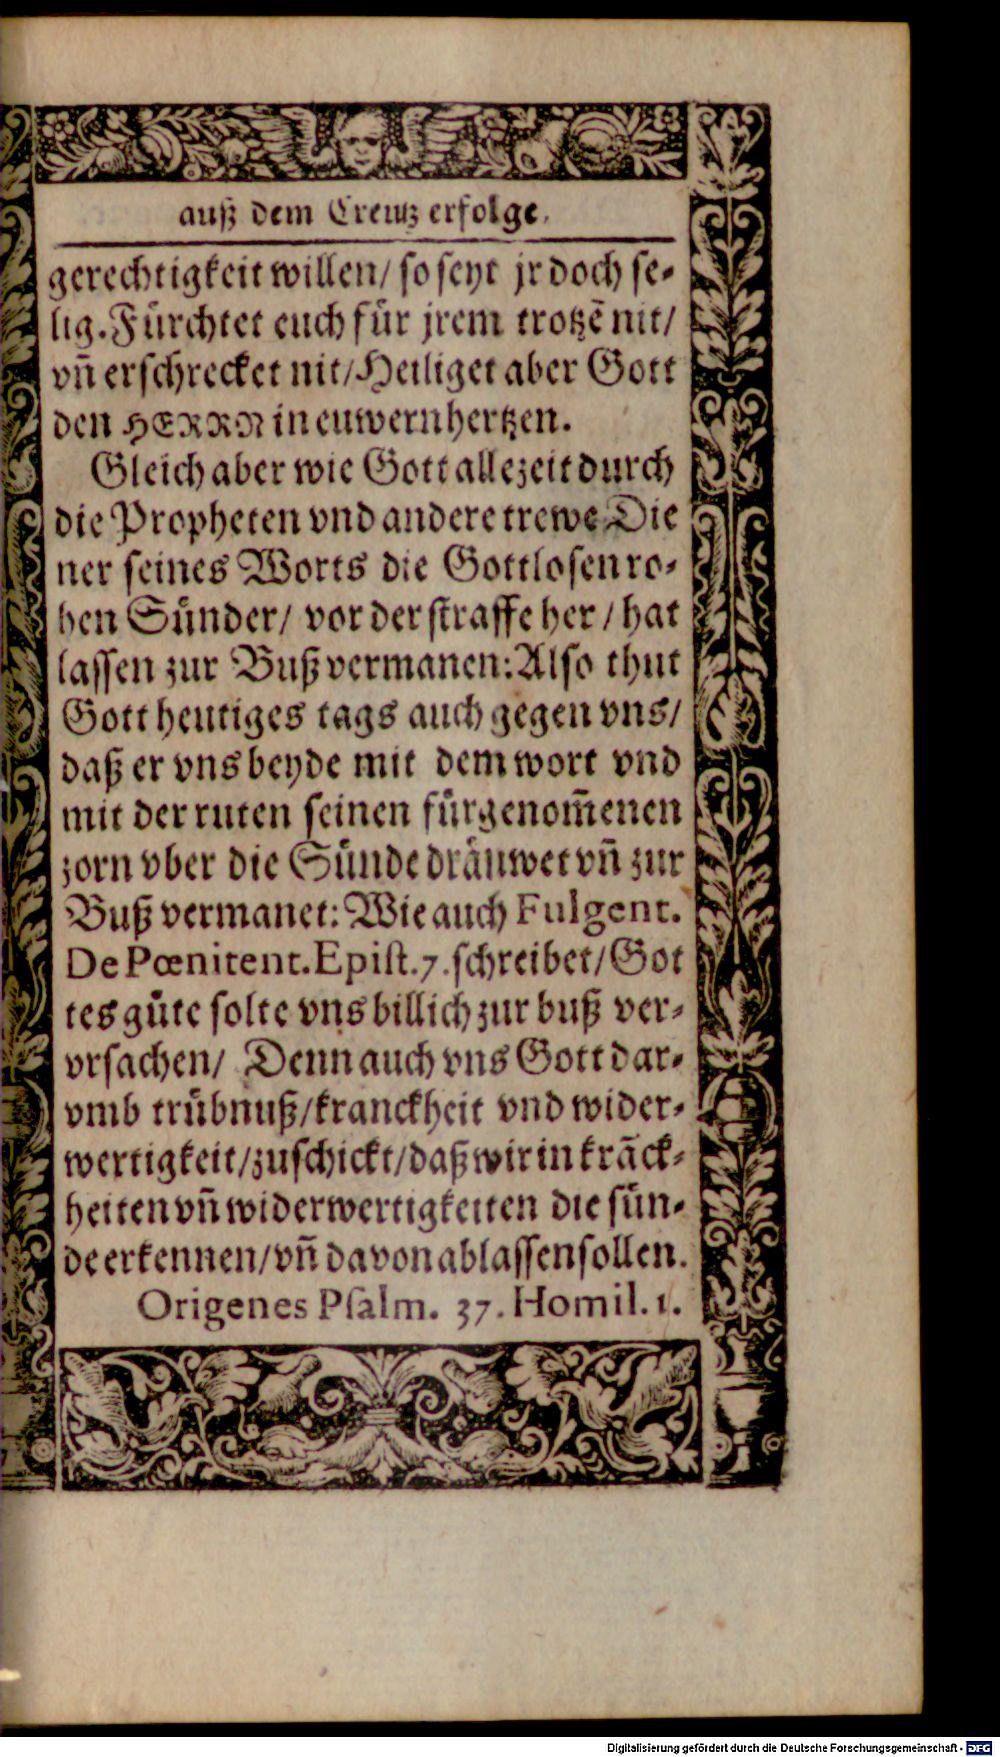 auß dem Creutz erfolge.
gerechtigkeit willen/ so seyt jr doch se-
lig. Fürchtet euch für jrem trotzẽ nit/
vñ erschrecket nit/ Heiliget aber Gott
den HERRN in euwern hertzen.
Gleich aber wie Gott allezeit durch
die Propheten vnd andere trewe Die
ner seines Worts die Gottlosen ro-
hen Sünder/ vor der straffe her/ hat
lassen zur Buß vermanen: Also thut
Gott heutiges tags auch gegen vns/
daß er vns beyde mit dem wort vnd
mit der ruten seinen fürgenom̃enen
zorn vber die Sünde dräuwet vñ zur
Buß vermanet: Wie auch Fulgent.
De Pœnitent. Epist. 7. schreibet/ Got
tes güte solte vns billich zur buß ver-
vrsachen/ Denn auch vns Gott dar-
vmb trübnuß/ kranckheit vnd wider-
wertigkeit/ zuschickt/ daß wir in krãck-
heiten vñ widerwertigkeiten die sün-
de erkennen/ vñ davon ablassen sollen.
Origenes Psalm. 37. Homil. 1.
Digitalisierung gefördert durch die Deutsche Forschungsgemeinschaft - DFG